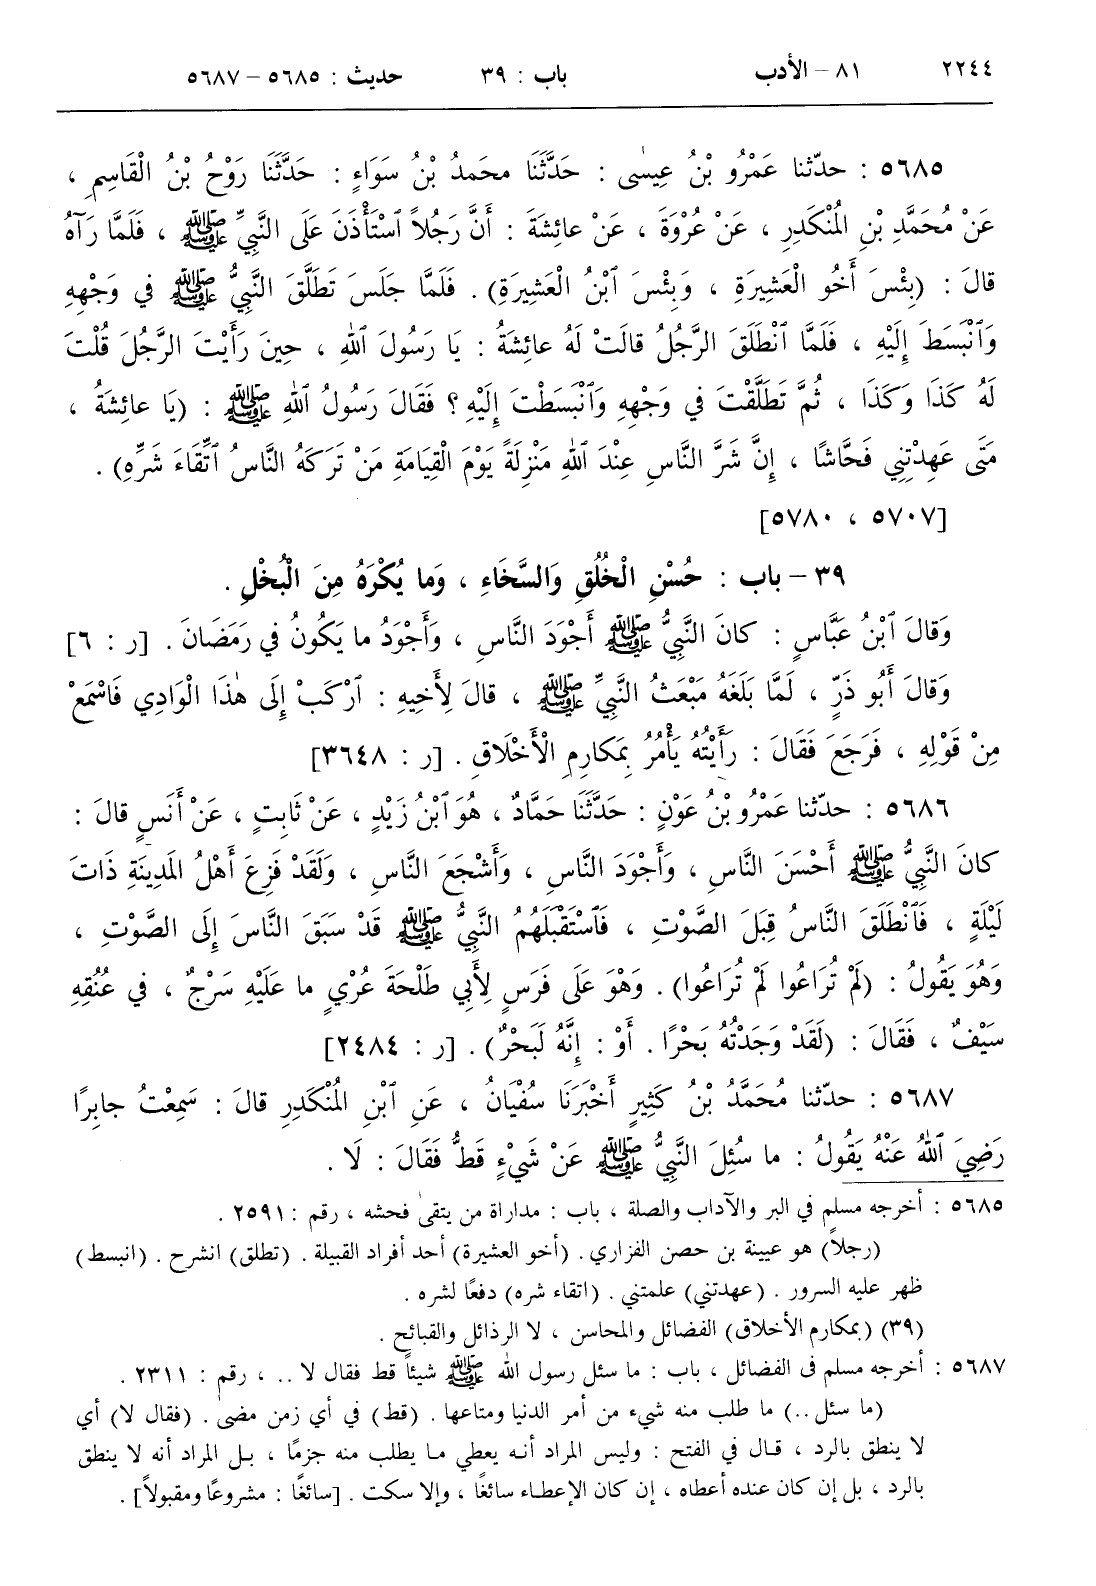 ٢٢٤٤ ٨١ – الأدب باب : ٣٩ حديث : ٥٦٨٥ – ٥٦٨٧
٥٦٨٥ : حدّثنا عَمْرُو بْنُ عِيسٰى : حَدَّثَنَا محَمدُ بْنُ سَوَاءٍ : حَدَّثَنَا رَوْحُ بْنُ الْقَاسِمِ ،
عَنْ مُحَمَّدِ بْنِ المُنْكَدِرِ ، عَنْ عُرْوَةَ ، عَنْ عائِشَةَ : أَنَّ رَجُلاً ٱسْتَأْذَنَ عَلَى النَّبِيِّ ﷺ ، فَلَمَّا رَآهُ
قالَ : (بِئْسَ أَخُو الْعَشِيرَةِ ، وَبِئْسَ ٱبْنُ الْعَشِيرَةِ) . فَلَمَّا جَلَسَ تَطَلَّقَ النَّبِيُّ ﷺ في وَجْهِهِ
وَٱنْبَسَطَ إِلَيْهِ ، فَلَمَّا ٱنْطَلَقَ الرَّجُلُ قالَتْ لَهُ عائِشَةُ : يَا رَسُولَ ٱللهِ ، حِينَ رَأَيْتَ الرَّجُلَ قُلْتَ
لَهُ كَذَا وَكَذَا ، ثُمَّ تَطَلَّقْتَ في وَجْهِهِ وَٱنْبَسَطْتَ إِلَيْهِ ؟ فَقَالَ رَسُولُ ٱللهِ ﷺ : (يَا عائِشَةُ ،
مَتَى عَهِدْتِنِي فَحَّاشًا ، إِنَّ شَرَّ النَّاسِ عِنْدَ ٱللهِ مَنْزِلَةً يَوْمَ الْقِيَامَةِ مَنْ تَرَكَهُ النَّاسُ ٱتِّقَاءَ شَرِّهِ) .
[٥٧٠٧ ، ٥٧٨٠]
٣٩ – باب : حُسْنِ الْخُلُقِ وَالسَّخَاءِ ، وَما يُكْرَهُ مِنَ الْبُخْلِ .
وَقالَ ٱبْنُ عَبَّاسٍ : كانَ النَّبِيُّ ﷺ أَجْوَدَ النَّاسِ ، وَأَجْوَدُ ما يَكُونُ في رَمَضَانَ . [ر : ٦]
وَقالَ أَبُو ذَرٍّ ، لَمَّا بَلَغَهُ مَبْعَثُ النَّبِيِّ ﷺ ، قالَ لِأَخِيهِ : ٱرْكَبْ إِلَى هٰذَا الْوَادِي فَاسْمَعْ
مِنْ قَوْلِهِ ، فَرَجَعَ فَقَالَ : رَأَيْتُهُ يَأْمُرُ بِمَكارِمِ الْأَخْلَاقِ . [ر : ٣٦٤٨]
٥٦٨٦ : حدّثنا عَمْرُو بْنُ عَوْنٍ : حَدَّثَنَا حَمَّادٌ ، هُوَ ٱبْنُ زَيْدٍ ، عَنْ ثَابِتٍ ، عَنْ أَنَسٍ قالَ :
كانَ النَّبِيُّ ﷺ أَحْسَنَ النَّاسِ ، وَأَجْوَدَ النَّاسِ ، وَأَشْجَعَ النَّاسِ ، وَلَقَدْ فَزِعَ أَهْلُ المَدِينَةِ ذَاتَ
لَيْلَةٍ ، فَٱنْطَلَقَ النَّاسُ قِبَلَ الصَّوْتِ ، فَٱسْتَقْبَلَهُمُ النَّبِيُّ ﷺ قَدْ سَبَقَ النَّاسَ إِلَى الصَّوْتِ ،
وَهُوَ يَقُولُ : (لَمْ تُرَاعُوا لَمْ تُرَاعُوا) . وَهْوَ عَلَى فَرَسٍ لِأَبِي طَلْحَةَ عُرْيٍ ما عَلَيْهِ سَرْجٌ ، في عُنُقِهِ
سَيْفٌ ، فَقَالَ : (لَقَدْ وَجَدْتُهُ بَحْرًا . أَوْ : إِنَّهُ لَبَحْرٌ) . [ر : ٢٤٨٤]
٥٦٨٧ : حدّثنا مُحَمَّدُ بْنُ كَثِيرٍ أَخْبَرَنَا سُفْيَانُ ، عَنِ ٱبْنِ المُنْكَدِرِ قالَ : سَمِعْتُ جابِرًا
رَضِيَ ٱللهُ عَنْهُ يَقُولُ : ما سُئِلَ النَّبِيُّ ﷺ عَنْ شَيْءٍ قَطُّ فَقَالَ : لَا .
٥٦٨٥ : أخرجه مسلم في البر والآداب والصلة ، باب : مداراة من يتقى فحشه ، رقم : ٢٥٩١ .
(رجلاً) هو عيينة بن حصن الفزاري . (أخو العشيرة) أحد أفراد القبيلة . (تطلق) انشرح . (انبسط)
ظهر عليه السرور . (عهدتني) علمتني . (اتقاء شره) دفعًا لشره .
(٣٩) (بمكارم الأخلاق) الفضائل والمحاسن ، لا الرذائل والقبائح .
٥٦٨٧ : أخرجه مسلم في الفضائل ، باب : ما سئل رسول الله ﷺ شيئاً قط فقال لا .. ، رقم : ٢٣١١ .
(ما سئل ..) ما طلب منه شيء من أمر الدنيا ومتاعها . (قط) في أي زمن مضى . (فقال لا) أي
لا ينطق بالرد ، قال في الفتح : وليس المراد أنه يعطي ما يطلب منه جزمًا ، بل المراد أنه لا ينطق
بالرد ، بل إن كان عنده أعطاه ، إن كان الإعطاء سائغًا ، وإلا سكت . [سائغًا : مشروعًا ومقبولاً] .